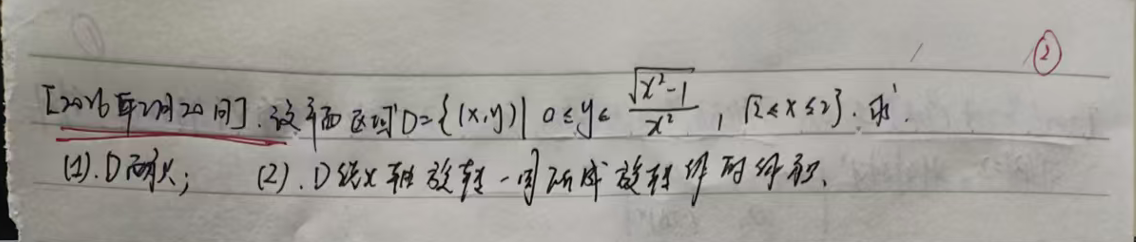 ②
[2026年2月20问]. 设平面区域D={(x,y)| 0≤y≤ \frac{\sqrt{x^2-1}}{x^2}, \sqrt{2}≤x≤2}. 求.
(1). D面积; (2). D绕x轴旋转一周所成旋转体的体积.